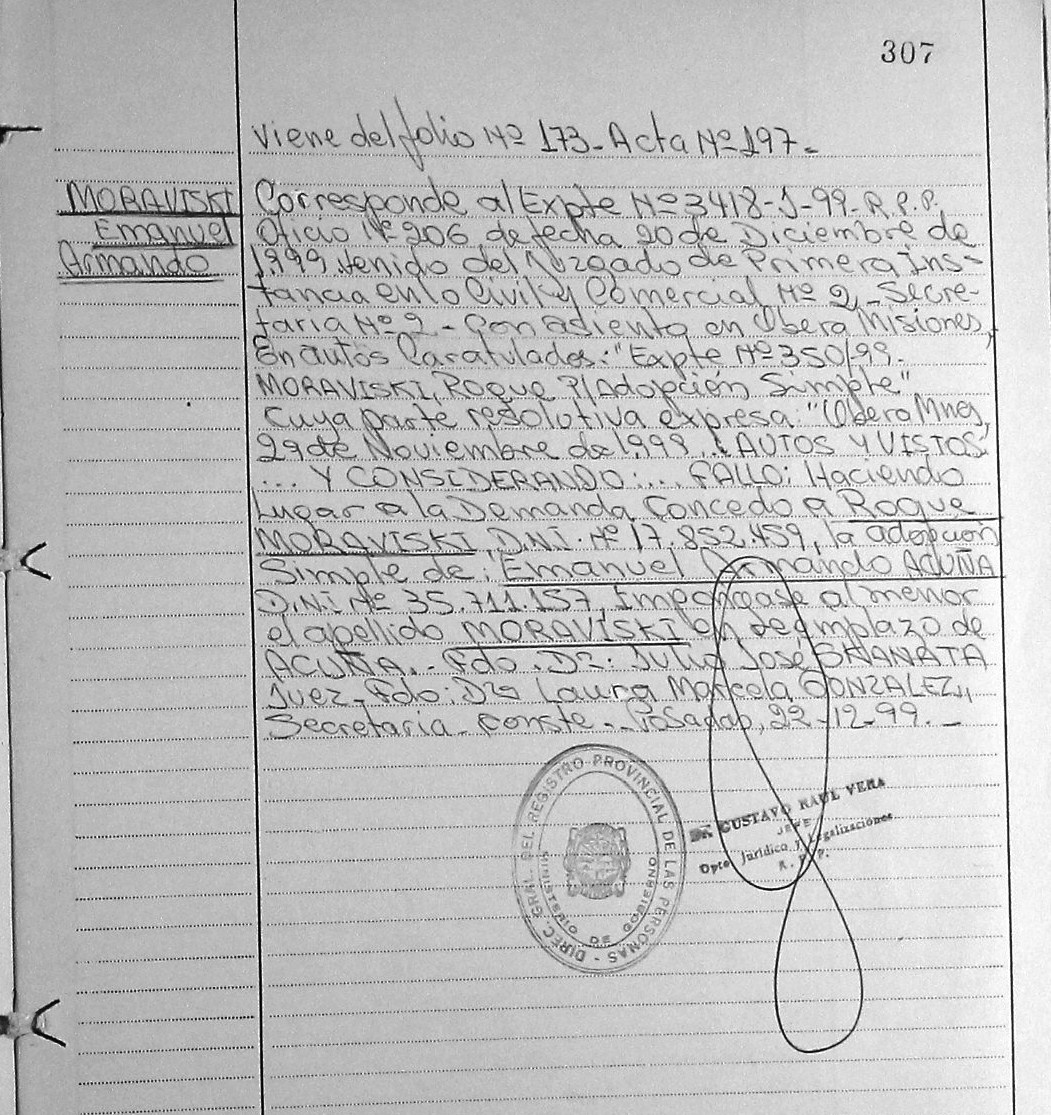 307
Viene del folio Nº 173- Acta Nº 197-
MORAVISKI
Emanuel
Armando
Corresponde al Expte Nº 3418-J-99-R.P.P.
Oficio Nº 206, de fecha 20 de Diciembre de
1.999 venido del Juzgado de Primera Ins-
tancia en lo Civil y Comercial Nº 2,- Secre-
taria Nº 2 - Con asiento en Obera Misiones,
En autos Caratulados: "Expte Nº 350/99-
MORAVISKI, Roque P/Adopción Simple"
Cuya parte resolutiva expresa: "Obera Mnes,
29 de Noviembre de 1.999, AUTOS Y VISTOS:
... Y CONSIDERANDO:... FALLO: Haciendo
Lugar a la Demanda Concedo a Roque
MORAVISKI, D.N.I. Nº 17.852.459, la adopcion
Simple de: Emanuel Armando ACUÑA
D.N.I Nº 35.711.157, Impongase al menor
el apellido MORAVISKI en reemplazo de
ACUÑA.- Fdo. Dr: Julio Jose
Juez - Fdo: Dra Laura Marcela GONZALEZ,,
Secretaria - Conste - Posadas, 22-12-99.-
DIREC. GRAL. DEL REGISTRO PROVINCIAL DE LAS PERSONAS -
MINISTERIO DE GOBIERNO
DR. GUSTAVO RAUL VERA
JEFE
Dpto. Jurídica y Legalizaciones
R. P. P.